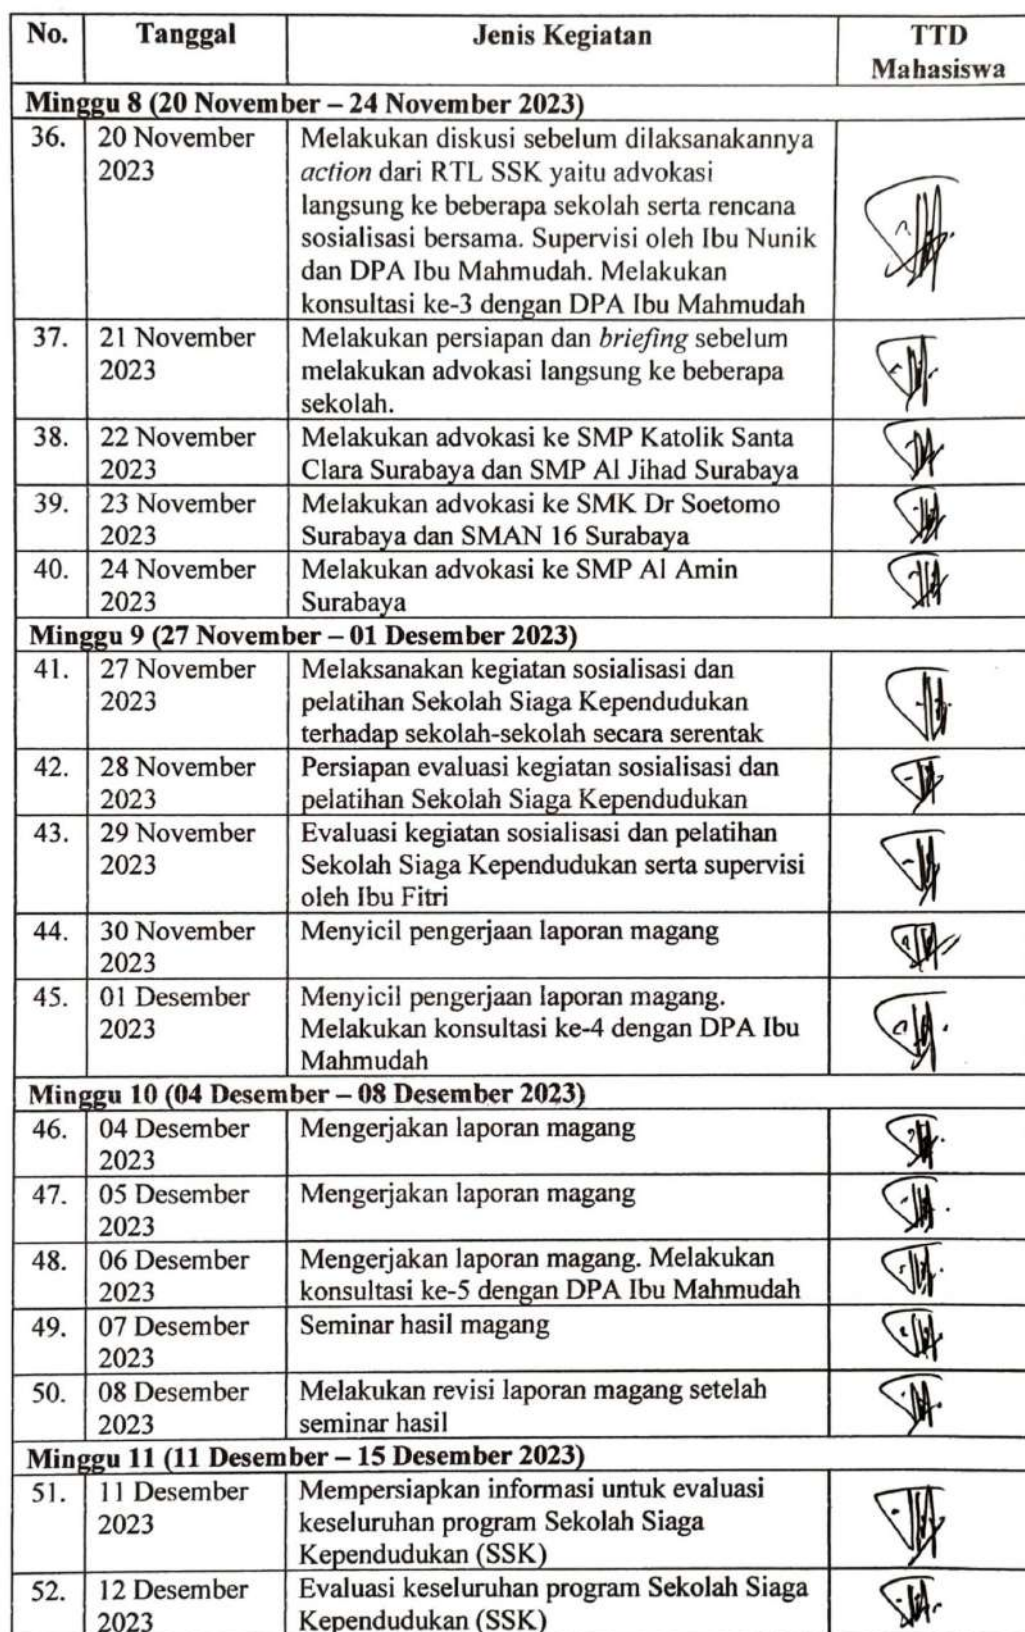 No. Tanggal Jenis Kegiatan TTD
Mahasiswa
Minggu 8 (20 November – 24 November 2023)
36. 20 November Melakukan diskusi sebelum dilaksanakannya
2023 action dari RTL SSK yaitu advokasi
langsung ke beberapa sekolah serta rencana
sosialisasi bersama. Supervisi oleh Ibu Nunik
dan DPA Ibu Mahmudah. Melakukan
konsultasi ke-3 dengan DPA Ibu Mahmudah
37. 21 November Melakukan persiapan dan briefing sebelum
2023 melakukan advokasi langsung ke beberapa
sekolah.
38. 22 November Melakukan advokasi ke SMP Katolik Santa
2023 Clara Surabaya dan SMP Al Jihad Surabaya
39. 23 November Melakukan advokasi ke SMK Dr Soetomo
2023 Surabaya dan SMAN 16 Surabaya
40. 24 November Melakukan advokasi ke SMP Al Amin
2023 Surabaya
Minggu 9 (27 November – 01 Desember 2023)
41. 27 November Melaksanakan kegiatan sosialisasi dan
2023 pelatihan Sekolah Siaga Kependudukan
terhadap sekolah-sekolah secara serentak
42. 28 November Persiapan evaluasi kegiatan sosialisasi dan
2023 pelatihan Sekolah Siaga Kependudukan
43. 29 November Evaluasi kegiatan sosialisasi dan pelatihan
2023 Sekolah Siaga Kependudukan serta supervisi
oleh Ibu Fitri
44. 30 November Menyicil pengerjaan laporan magang
2023
45. 01 Desember Menyicil pengerjaan laporan magang.
2023 Melakukan konsultasi ke-4 dengan DPA Ibu
Mahmudah
Minggu 10 (04 Desember – 08 Desember 2023)
46. 04 Desember Mengerjakan laporan magang
2023
47. 05 Desember Mengerjakan laporan magang
2023
48. 06 Desember Mengerjakan laporan magang. Melakukan
2023 konsultasi ke-5 dengan DPA Ibu Mahmudah
49. 07 Desember Seminar hasil magang
2023
50. 08 Desember Melakukan revisi laporan magang setelah
2023 seminar hasil
Minggu 11 (11 Desember – 15 Desember 2023)
51. 11 Desember Mempersiapkan informasi untuk evaluasi
2023 keseluruhan program Sekolah Siaga
Kependudukan (SSK)
52. 12 Desember Evaluasi keseluruhan program Sekolah Siaga
2023 Kependudukan (SSK)